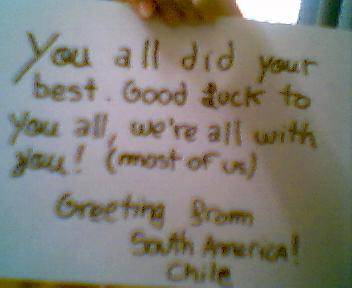 You all did your
best. Good luck to
you all, we're all with
you! (most of us)
Greeting from
South America!
Chile